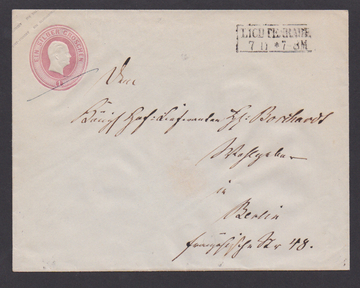 EIN SILBERGROSCHEN
LICHTENRADE
7 11 * 7-8 M
Dem
Königl. Hof-Lieferanten H: Borchardt
Wohlgeboren
in
Berlin
französische Str 48.